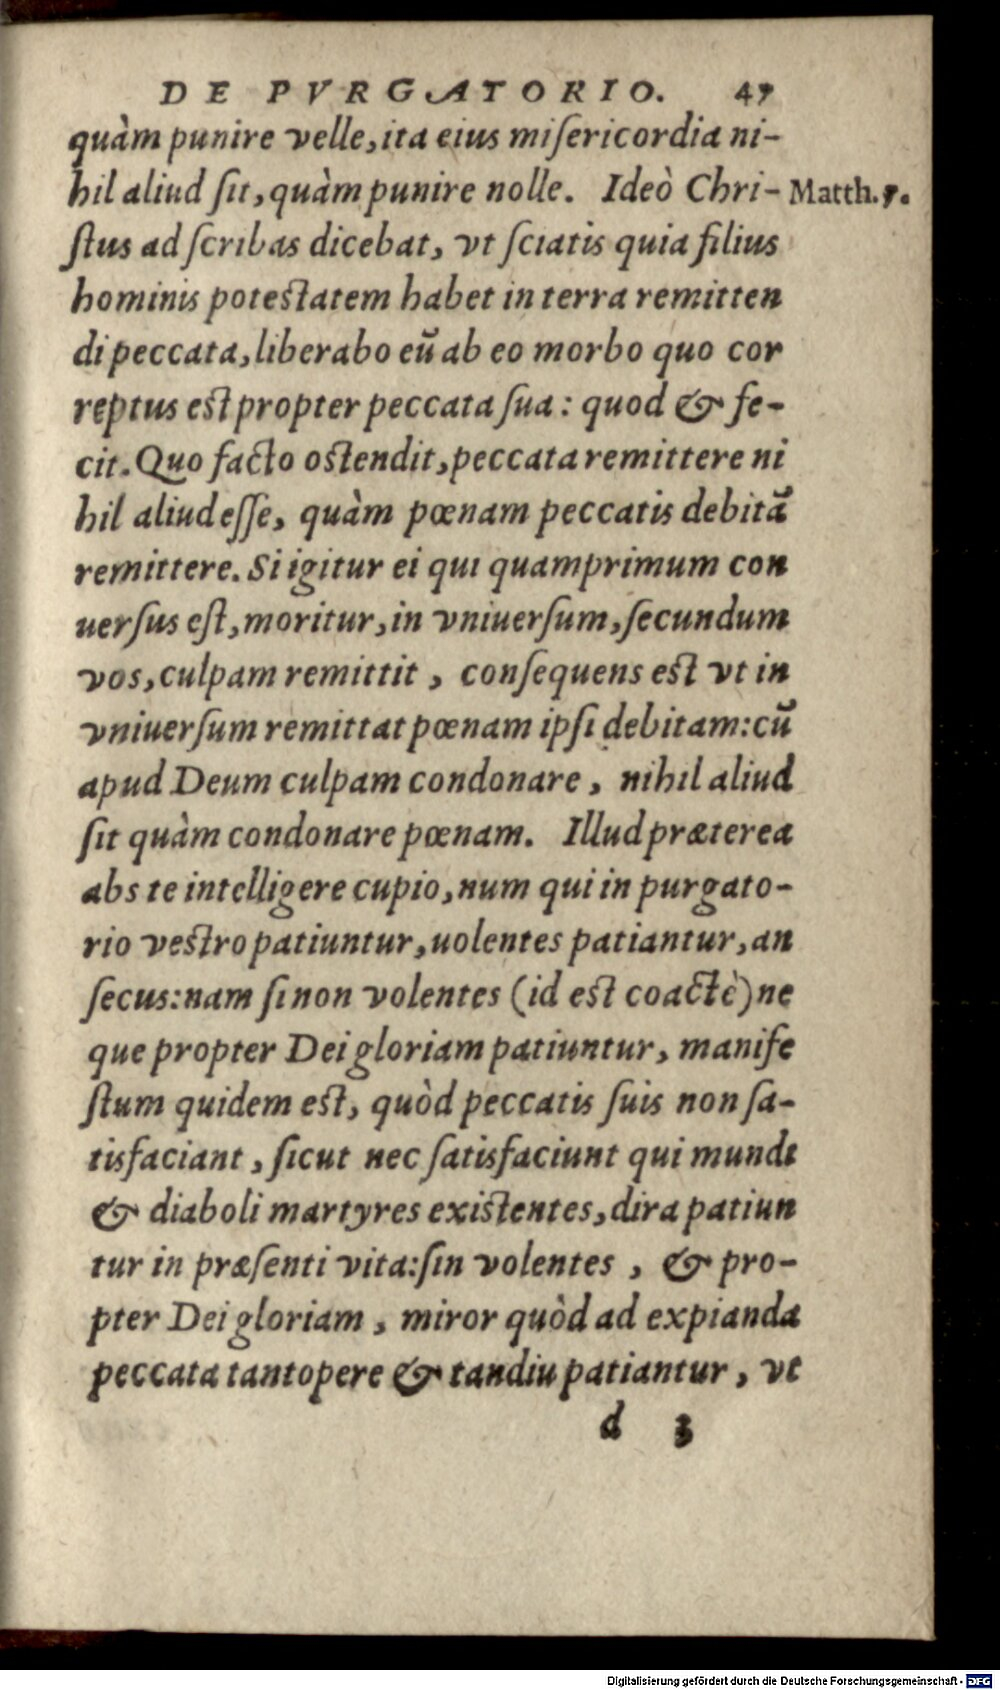 DE PVRGATORIO. 47
quàm punire velle, ita eius miſericordia ni-
hil aliud ſit, quàm punire nolle. Ideò Chri- Matth. 9.
ſtus ad ſcribas dicebat, vt ſciatis quia filius
hominis poteſtatem habet in terra remitten
di peccata, liberabo eũ ab eo morbo quo cor
reptus eſt propter peccata ſua: quod & fe-
cit. Quo facto oſtendit, peccata remittere ni
hil aliud eſſe, quàm pœnam peccatis debitã
remittere. Si igitur ei qui quamprimum con
uerſus eſt, moritur, in vniuerſum, ſecundum
vos, culpam remittit, conſequens eſt vt in
vniuerſum remittat pœnam ipſi debitam: cũ
apud Deum culpam condonare, nihil aliud
ſit quàm condonare pœnam. Illud præterea
abs te intelligere cupio, num qui in purgato-
rio veſtro patiuntur, uolentes patiantur, an
ſecus: nam ſi non volentes (id eſt coactè) ne
que propter Dei gloriam patiuntur, manife
ſtum quidem eſt, quòd peccatis ſuis non ſa-
tisfaciant, ſicut nec ſatisfaciunt qui mundi
& diaboli martyres exiſtentes, dira patiun
tur in præſenti vita: ſin volentes, & pro-
pter Dei gloriam, miror quòd ad expianda
peccata tantopere & tandiu patiantur, vt
d 3
Digitalisierung gefördert durch die Deutsche Forschungsgemeinschaft - DFG